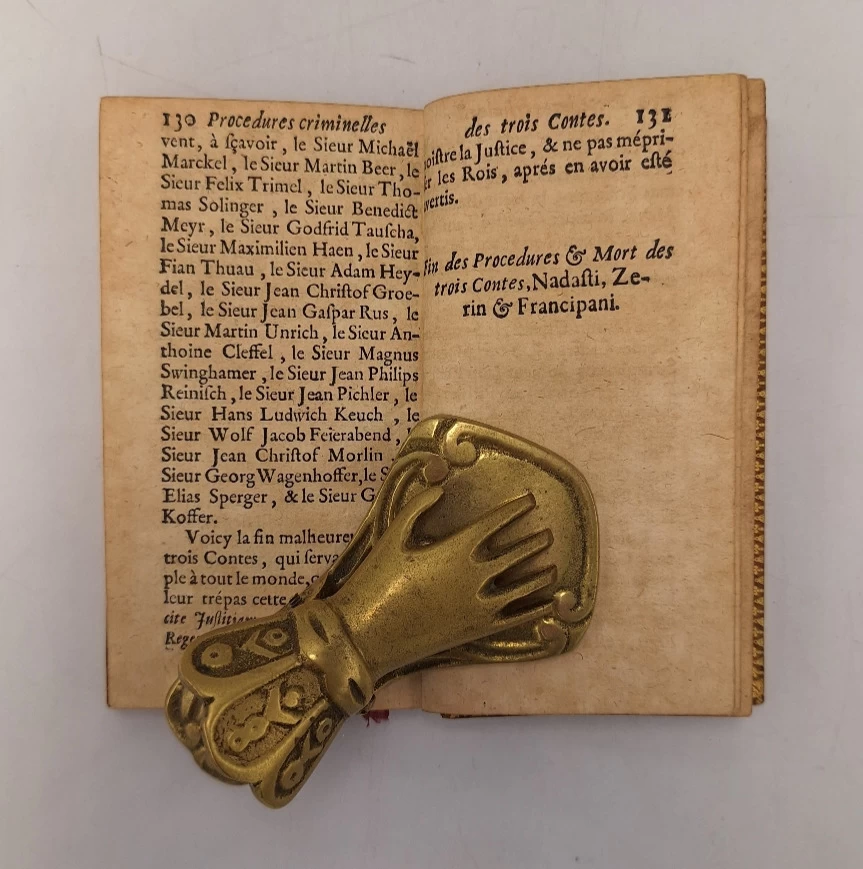 130 Procedures criminelles
vent, à sçavoir, le Sieur Michaël
Marckel, le Sieur Martin Beer, le
Sieur Felix Trimel, le Sieur Tho-
mas Solinger, le Sieur Benedict
Meyr, le Sieur Godfrid Tauſcha,
le Sieur Maximilien Haen, le Sieur
Fian Thuau, le Sieur Adam Hey-
del, le Sieur Jean Chriſtof Groe-
bel, le Sieur Jean Gaſpar Rus, le
Sieur Martin Unrich, le Sieur An-
thoine Cleffel, le Sieur Magnus
Swinghamer, le Sieur Jean Philips
Reiniſch, le Sieur Jean Pichler, le
Sieur Hans Ludwich Keuch, le
Sieur Wolf Jacob Feierabend,
Sieur Jean Chriſtof Morlin
Sieur Georg Wagenhoffer, le
Elias Sperger, & le Sieur
Koffer.
Voicy la fin
trois Contes, qui
ple à tout le monde,
leur trépas cette
cite
des trois Contes. 131
la Juſtice, & ne pas mépri-
les Rois, aprés en avoir eſté
des Procedures & Mort des
trois Contes, Nadaſti, Ze-
rin & Francipani.